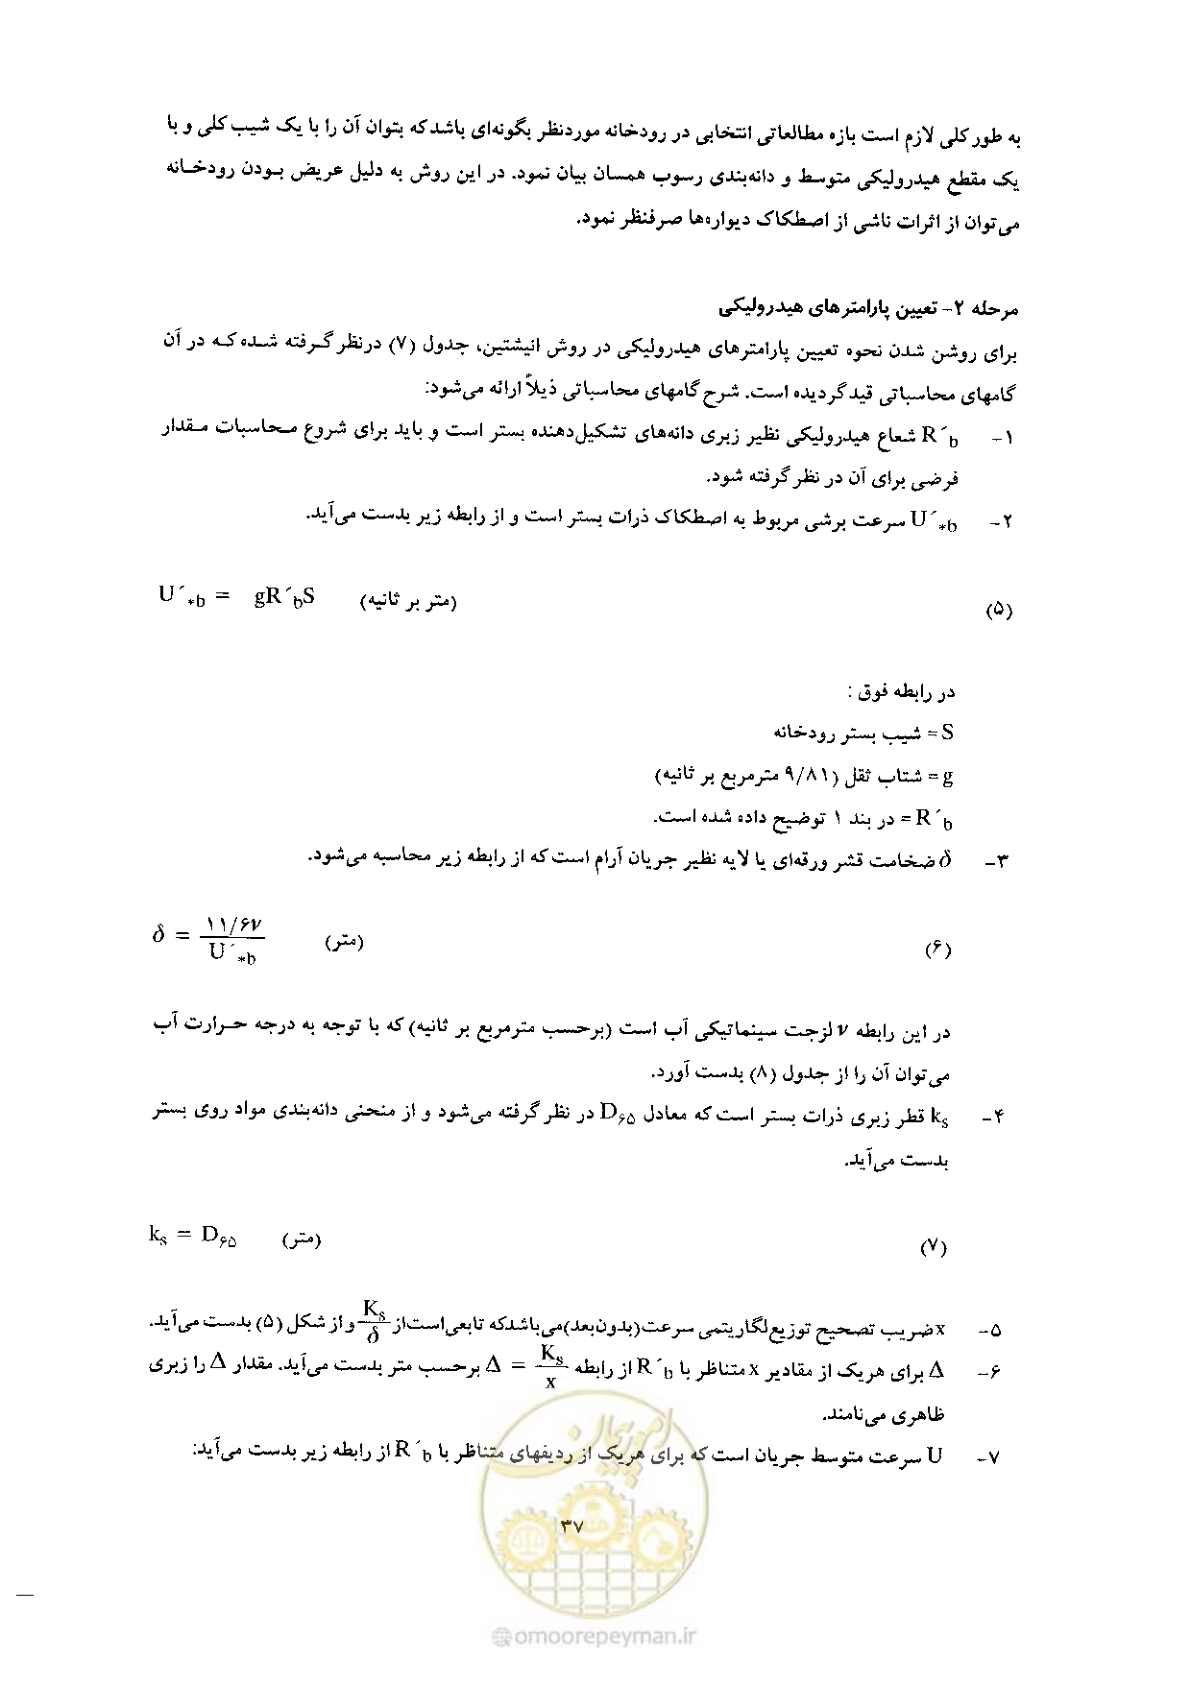 به طور کلی لازم است بازه مطالعاتی انتخابی در رودخانه موردنظر بگونه‌ای باشد که بتوان آن را با یک شیب کلی و با
یک مقطع هیدرولیکی متوسط و دانه‌بندی رسوب همسان بیان نمود. در این روش به دلیل عریض بودن رودخانه
می‌توان از اثرات ناشی از اصطکاک دیواره‌ها صرفنظر نمود.
مرحله ۲- تعیین پارامترهای هیدرولیکی
برای روشن شدن نحوه تعیین پارامترهای هیدرولیکی در روش انیشتین، جدول (۷) درنظر گرفته شده که در آن
گامهای محاسباتی قید گردیده است. شرح گامهای محاسباتی ذیلاً ارائه می‌شود:
۱- R´b شعاع هیدرولیکی نظیر زبری دانه‌های تشکیل‌دهنده بستر است و باید برای شروع محاسبات مقدار
فرضی برای آن در نظر گرفته شود.
۲- U´*b سرعت برشی مربوط به اصطکاک ذرات بستر است و از رابطه زیر بدست می‌آید.
U´*b = gR´bS (متر بر ثانیه) (۵)
در رابطه فوق :
S = شیب بستر رودخانه
g = شتاب ثقل (۹/۸۱ مترمربع بر ثانیه)
R´b = در بند ۱ توضیح داده شده است.
۳- δ ضخامت قشر ورقه‌ای یا لایه نظیر جریان آرام است که از رابطه زیر محاسبه می‌شود.
δ = ۱۱/۶ν / U´*b (متر) (۶)
در این رابطه ν لزجت سینماتیکی آب است (برحسب مترمربع بر ثانیه) که با توجه به درجه حرارت آب
می‌توان آن را از جدول (۸) بدست آورد.
۴- ks قطر زبری ذرات بستر است که معادل D۶۵ در نظر گرفته می‌شود و از منحنی دانه‌بندی مواد روی بستر
بدست می‌آید.
ks = D۶۵ (متر) (۷)
۵- x ضریب تصحیح توزیع لگاریتمی سرعت (بدون‌بعد) می‌باشد که تابعی است از Ks/δ و از شکل (۵) بدست می‌آید.
۶- Δ برای هریک از مقادیر x متناظر با R´b از رابطه Δ = Ks/x برحسب متر بدست می‌آید. مقدار Δ را زبری
ظاهری می‌نامند.
۷- U سرعت متوسط جریان است که برای هریک از ردیفهای متناظر با R´b از رابطه زیر بدست می‌آید:
۳۷
امور پیمان
@omoorepeyman.ir